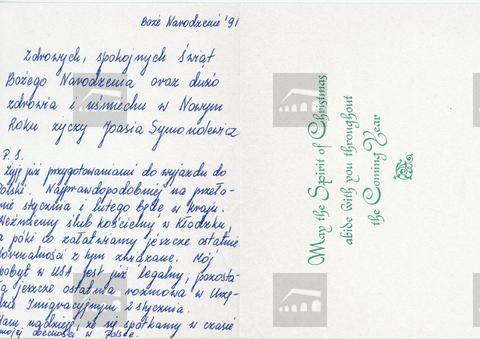 Boże Narodzenie '91
Zdrowych, spokojnych Świąt
Bożego Narodzenia oraz dużo
zdrowia i uśmiechu w Nowym
Roku życzy Joasia Symonolewicz
P.S.
Żyję już przygotowaniami do wyjazdu do
olski. Najprawdopodobniej na przeło-
mie stycznia i lutego będę w kraju.
Weźmiemy ślub kościelny w Kłodzku,
a póki co załatwiamy jeszcze ostatnie
formalności z tym związane. Mój
pobyt w USA jest już legalny, pozosta-
ła jeszcze ostatnia rozmowa w Urzę-
dzie Imigracyjnym 2 stycznia.
Mam nadzieję, że się spotkamy w czasie
mojej obecności w Polsce.
May the Spirit of Christmas
abide with you throughout
the Coming Year